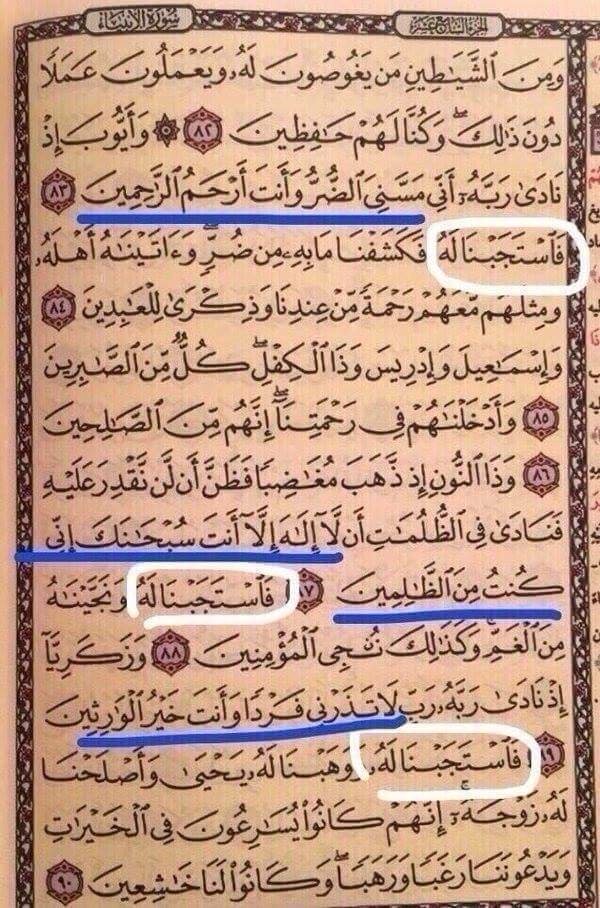 الجزء السابع عشر
سورة الأنبياء
وَمِنَ ٱلشَّيَٰطِينِ مَن يَغُوصُونَ لَهُۥ وَيَعْمَلُونَ عَمَلًا
دُونَ ذَٰلِكَ ۖ وَكُنَّا لَهُمْ حَٰفِظِينَ ٨٢ ۞ وَأَيُّوبَ إِذْ
نَادَىٰ رَبَّهُۥٓ أَنِّى مَسَّنِىَ ٱلضُّرُّ وَأَنتَ أَرْحَمُ ٱلرَّٰحِمِينَ ٨٣
فَٱسْتَجَبْنَا لَهُۥ فَكَشَفْنَا مَا بِهِۦ مِن ضُرٍّ ۖ وَءَاتَيْنَٰهُ أَهْلَهُۥ
وَمِثْلَهُم مَّعَهُمْ رَحْمَةً مِّنْ عِندِنَا وَذِكْرَىٰ لِلْعَٰبِدِينَ ٨٤
وَإِسْمَٰعِيلَ وَإِدْرِيسَ وَذَا ٱلْكِفْلِ ۖ كُلٌّ مِّنَ ٱلصَّٰبِرِينَ
٨٥ وَأَدْخَلْنَٰهُمْ فِى رَحْمَتِنَآ ۖ إِنَّهُم مِّنَ ٱلصَّٰلِحِينَ
٨٦ وَذَا ٱلنُّونِ إِذ ذَّهَبَ مُغَٰضِبًا فَظَنَّ أَن لَّن نَّقْدِرَ عَلَيْهِ
فَنَادَىٰ فِى ٱلظُّلُمَٰتِ أَن لَّآ إِلَٰهَ إِلَّآ أَنتَ سُبْحَٰنَكَ إِنِّى
كُنتُ مِنَ ٱلظَّٰلِمِينَ ٨٧ فَٱسْتَجَبْنَا لَهُۥ وَنَجَّيْنَٰهُ
مِنَ ٱلْغَمِّ ۚ وَكَذَٰلِكَ نُۨجِى ٱلْمُؤْمِنِينَ ٨٨ وَزَكَرِيَّآ
إِذْ نَادَىٰ رَبَّهُۥ رَبِّ لَا تَذَرْنِى فَرْدًا وَأَنتَ خَيْرُ ٱلْوَٰرِثِينَ
٨٩ فَٱسْتَجَبْنَا لَهُۥ وَوَهَبْنَا لَهُۥ يَحْيَىٰ وَأَصْلَحْنَا
لَهُۥ زَوْجَهُۥٓ ۚ إِنَّهُمْ كَانُوا۟ يُسَٰرِعُونَ فِى ٱلْخَيْرَٰتِ
وَيَدْعُونَنَا رَغَبًا وَرَهَبًا ۖ وَكَانُوا۟ لَنَا خَٰشِعِينَ ٩٠